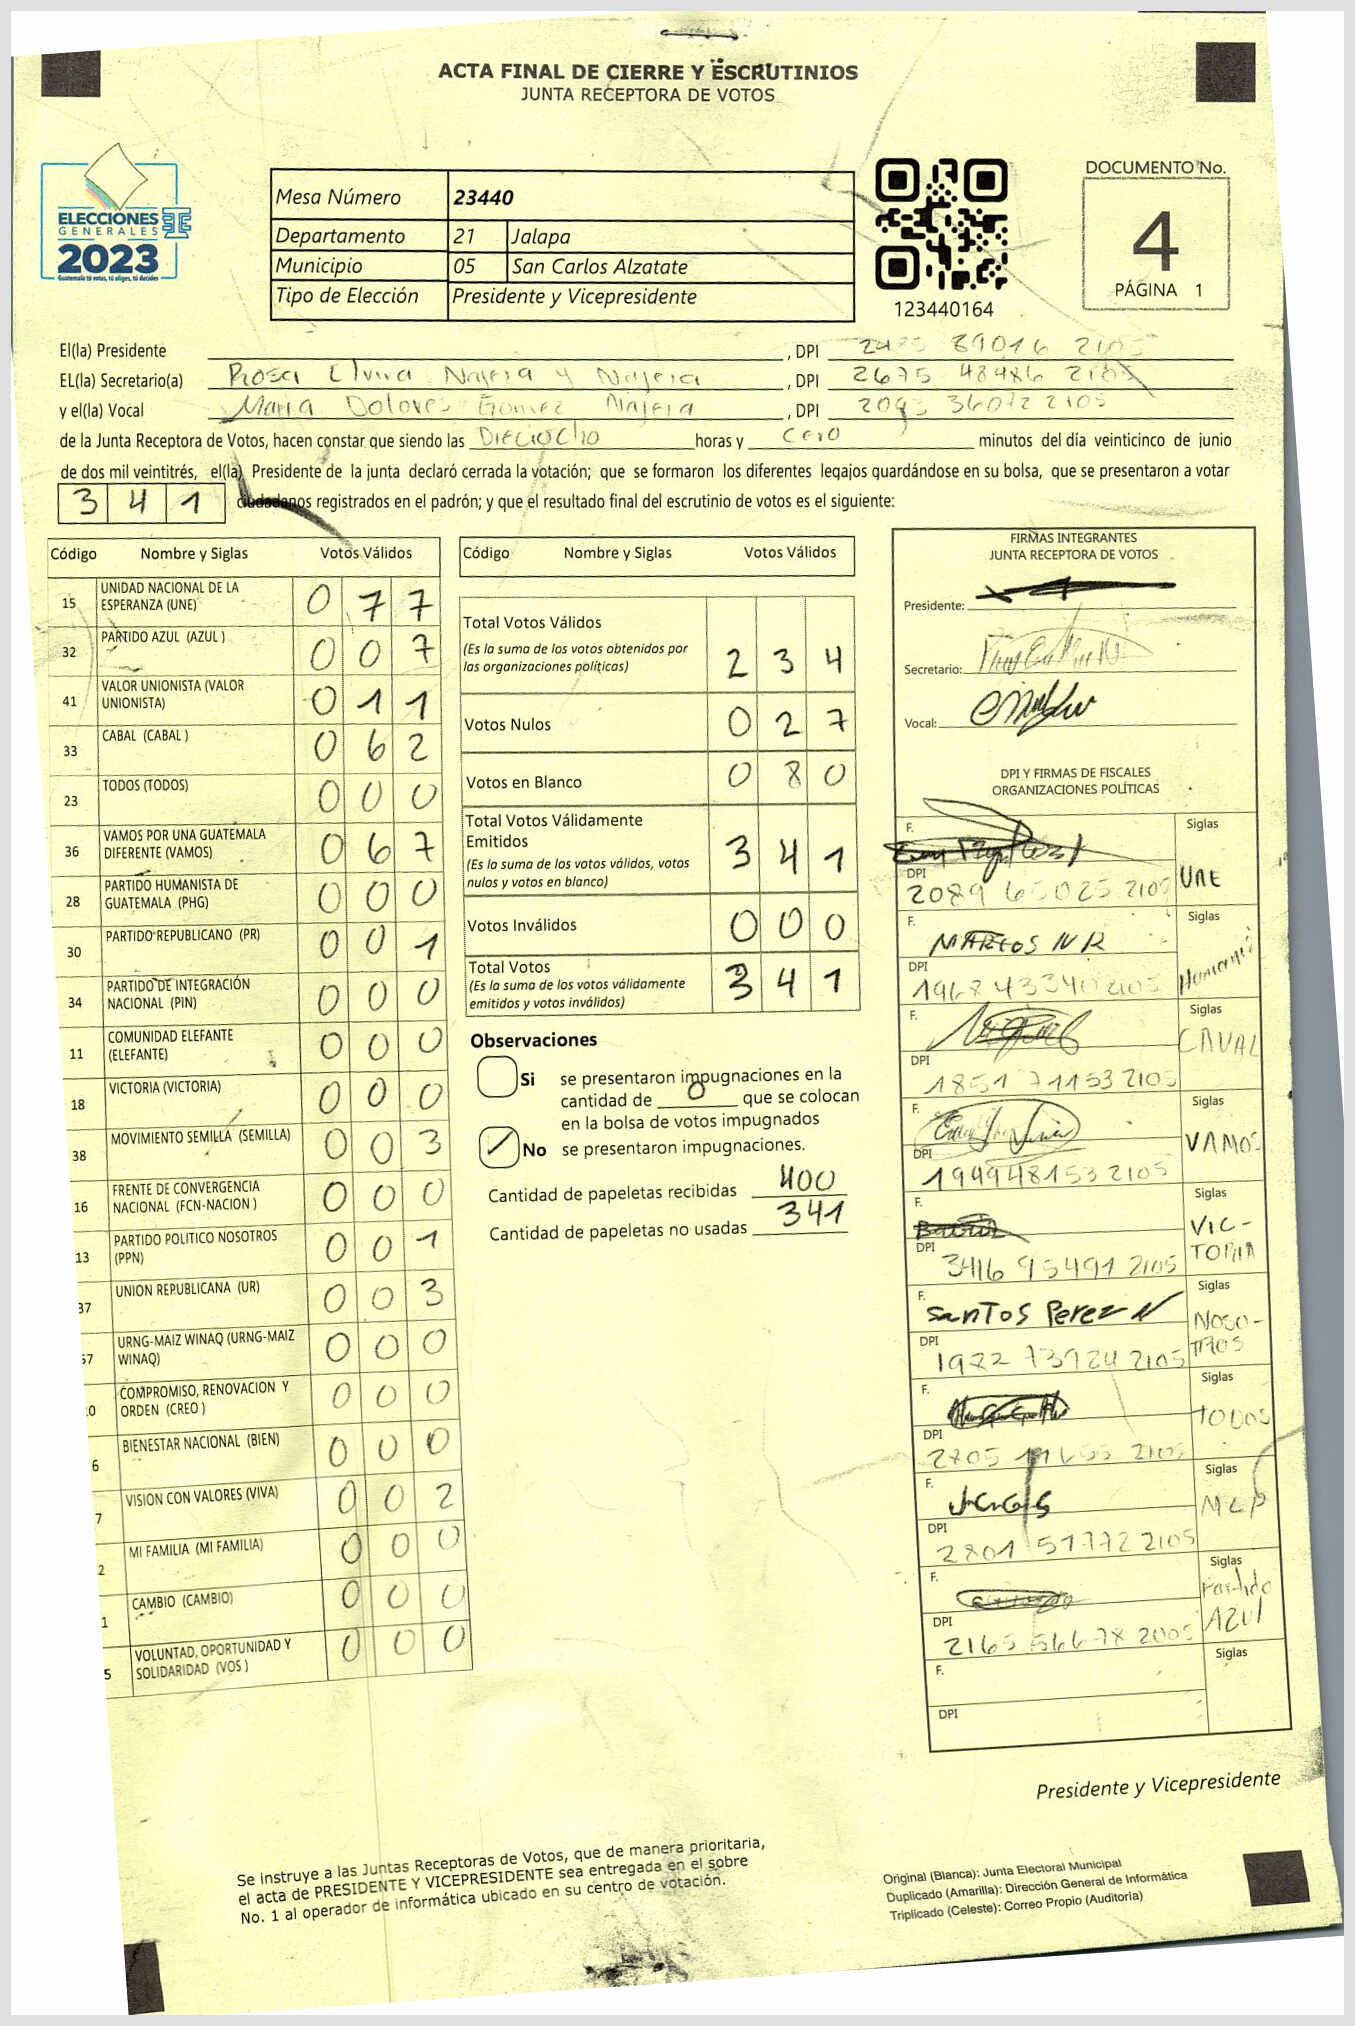 ACTA FINAL DE CIERRE Y ESCRUTINIOS
JUNTA RECEPTORA DE VOTOS
ELECCIONES
GENERALES
2023
Guatemala tú votas, tú eliges, tú decides
Mesa Número 23440
Departamento 21 Jalapa
Municipio 05 San Carlos Alzatate
Tipo de Elección Presidente y Vicepresidente
123440164
DOCUMENTO No.
4
PÁGINA 1
El(la) Presidente , DPI 89016 2105
EL(la) Secretario(a) Rosa Elvira Najera y Najera , DPI 2675 48486 2105
y el(la) Vocal Maria Dolores Gomez Najera , DPI 36072 2105
de la Junta Receptora de Votos, hacen constar que siendo las Dieciocho horas y cero minutos del día veinticinco de junio
de dos mil veintitrés, el(la) Presidente de la junta declaró cerrada la votación; que se formaron los diferentes legajos guardándose en su bolsa, que se presentaron a votar
341 ciudadanos registrados en el padrón; y que el resultado final del escrutinio de votos es el siguiente:
Código Nombre y Siglas Votos Válidos
15 UNIDAD NACIONAL DE LA ESPERANZA (UNE) 0 7 7
32 PARTIDO AZUL (AZUL ) 0 0 7
41 VALOR UNIONISTA (VALOR UNIONISTA) 0 1 1
33 CABAL (CABAL ) 0 6 2
23 TODOS (TODOS) 0 0 0
36 VAMOS POR UNA GUATEMALA DIFERENTE (VAMOS) 0 6 7
28 PARTIDO HUMANISTA DE GUATEMALA (PHG) 0 0 0
30 PARTIDO REPUBLICANO (PR) 0 0 1
34 PARTIDO DE INTEGRACIÓN NACIONAL (PIN) 0 0 0
11 COMUNIDAD ELEFANTE (ELEFANTE) 0 0 0
18 VICTORIA (VICTORIA) 0 0 0
38 MOVIMIENTO SEMILLA (SEMILLA) 0 0 3
16 FRENTE DE CONVERGENCIA NACIONAL (FCN-NACION ) 0 0 0
13 PARTIDO POLITICO NOSOTROS (PPN) 0 0 1
37 UNION REPUBLICANA (UR) 0 0 3
57 URNG-MAIZ WINAQ (URNG-MAIZ WINAQ) 0 0 0
0 COMPROMISO, RENOVACION Y ORDEN (CREO ) 0 0 0
6 BIENESTAR NACIONAL (BIEN) 0 0 0
7 VISION CON VALORES (VIVA) 0 0 2
2 MI FAMILIA (MI FAMILIA) 0 0 0
1 CAMBIO (CAMBIO) 0 0 0
5 VOLUNTAD, OPORTUNIDAD Y SOLIDARIDAD (VOS ) 0 0 0
Código Nombre y Siglas Votos Válidos
Total Votos Válidos 2 3 4
(Es la suma de los votos obtenidos por
las organizaciones políticas)
Votos Nulos 0 2 7
Votos en Blanco 0 8 0
Total Votos Válidamente
Emitidos 3 4 1
(Es la suma de los votos válidos, votos
nulos y votos en blanco)
Votos Inválidos 0 0 0
Total Votos 3 4 1
(Es la suma de los votos válidamente
emitidos y votos inválidos)
Observaciones
Si se presentaron impugnaciones en la
cantidad de 0 que se colocan
en la bolsa de votos impugnados
No se presentaron impugnaciones.
Cantidad de papeletas recibidas 400
Cantidad de papeletas no usadas 341
FIRMAS INTEGRANTES
JUNTA RECEPTORA DE VOTOS
Presidente:
Secretario:
Vocal:
DPI Y FIRMAS DE FISCALES
ORGANIZACIONES POLÍTICAS
F. Siglas
DPI 2089 65025 2105 UNE
F. MARCOS N R Siglas
DPI 1968 43340 2105
F. Siglas
DPI 1851 71153 2105 CAVAL
F. Siglas
DPI 1949 48153 2105 VAMOS
F. Siglas
DPI 3416 95491 2105 VIC-TORIA
F. Santos Perez N Siglas
DPI 1982 73924 2105 NOSO-TROS
F. Siglas
DPI 2805 19655 2105 TODOS
F. Siglas
DPI 2801 51772 2105 MLP
F. Siglas
DPI 2165 56678 2005 Partido AZUL
F. Siglas
DPI
Presidente y Vicepresidente
Se instruye a las Juntas Receptoras de Votos, que de manera prioritaria,
el acta de PRESIDENTE Y VICEPRESIDENTE sea entregada en el sobre
No. 1 al operador de informática ubicado en su centro de votación.
Original (Blanca): Junta Electoral Municipal
Duplicado (Amarilla): Dirección General de Informática
Triplicado (Celeste): Correo Propio (Auditoria)